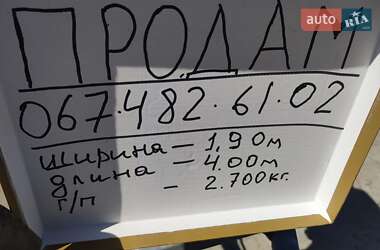 auto RIA
ПРОДАМ
067.482.61.02
ширина – 1,90м
длина – 4.00м
г/п – 2.700кг.